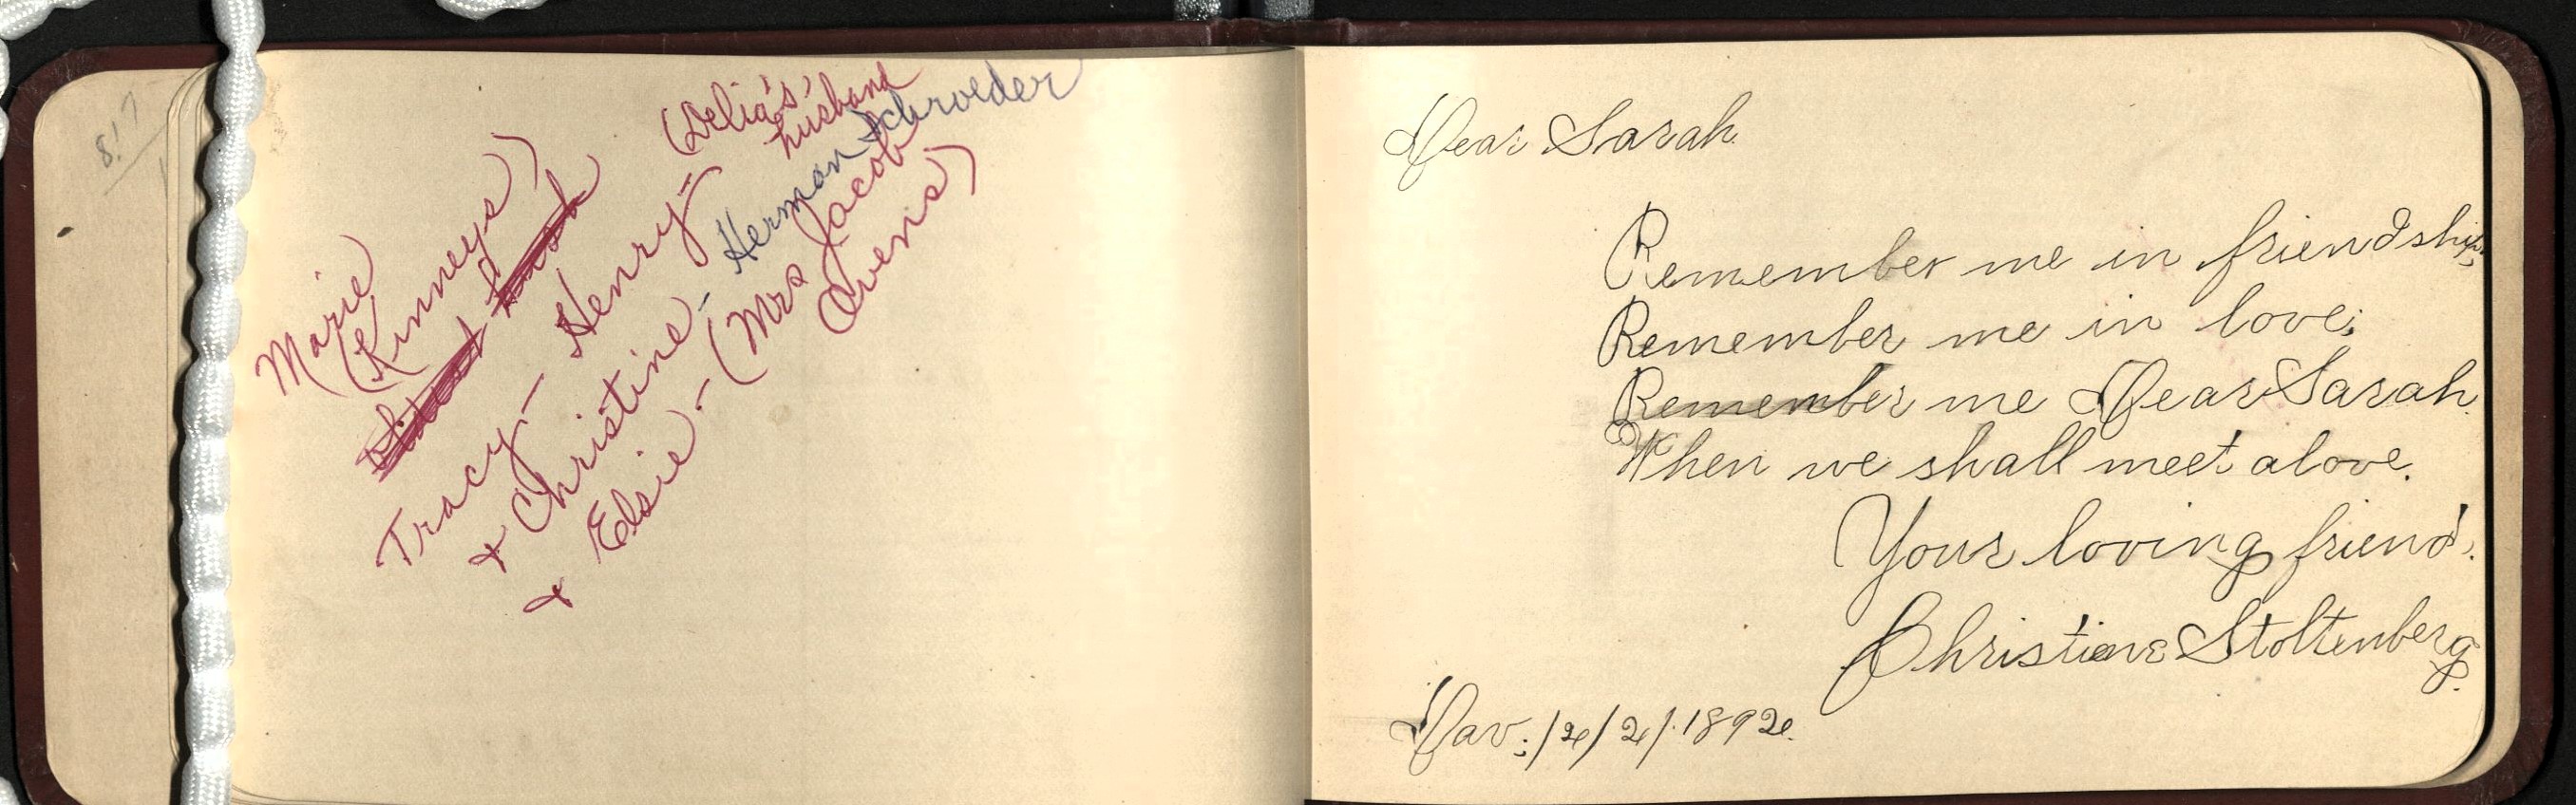 8!7
Marie
(Kinneys)
Tracy - Henry - (Delia's husband
+ Christine - Herman Schroeder
+ Elsie - (Mrs Jacob
Ovens)
Dear Sarah
Remember me in friendship;
Remember me in love;
Remember me Dear Sarah
When we shall meet above.
Your loving friend.
Christine Stoltenberg.
Dav; /2/2/. 1892.